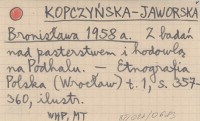 KOPCZYŃSKA-JAWORSKA
Bronisława 1958 a. Z badań
nad pasterstwem i hodowlą
na Podhalu. — Etnografia
Polska (Wrocław) t. 1, s. 357-
360, ilustr.
WHP, MT